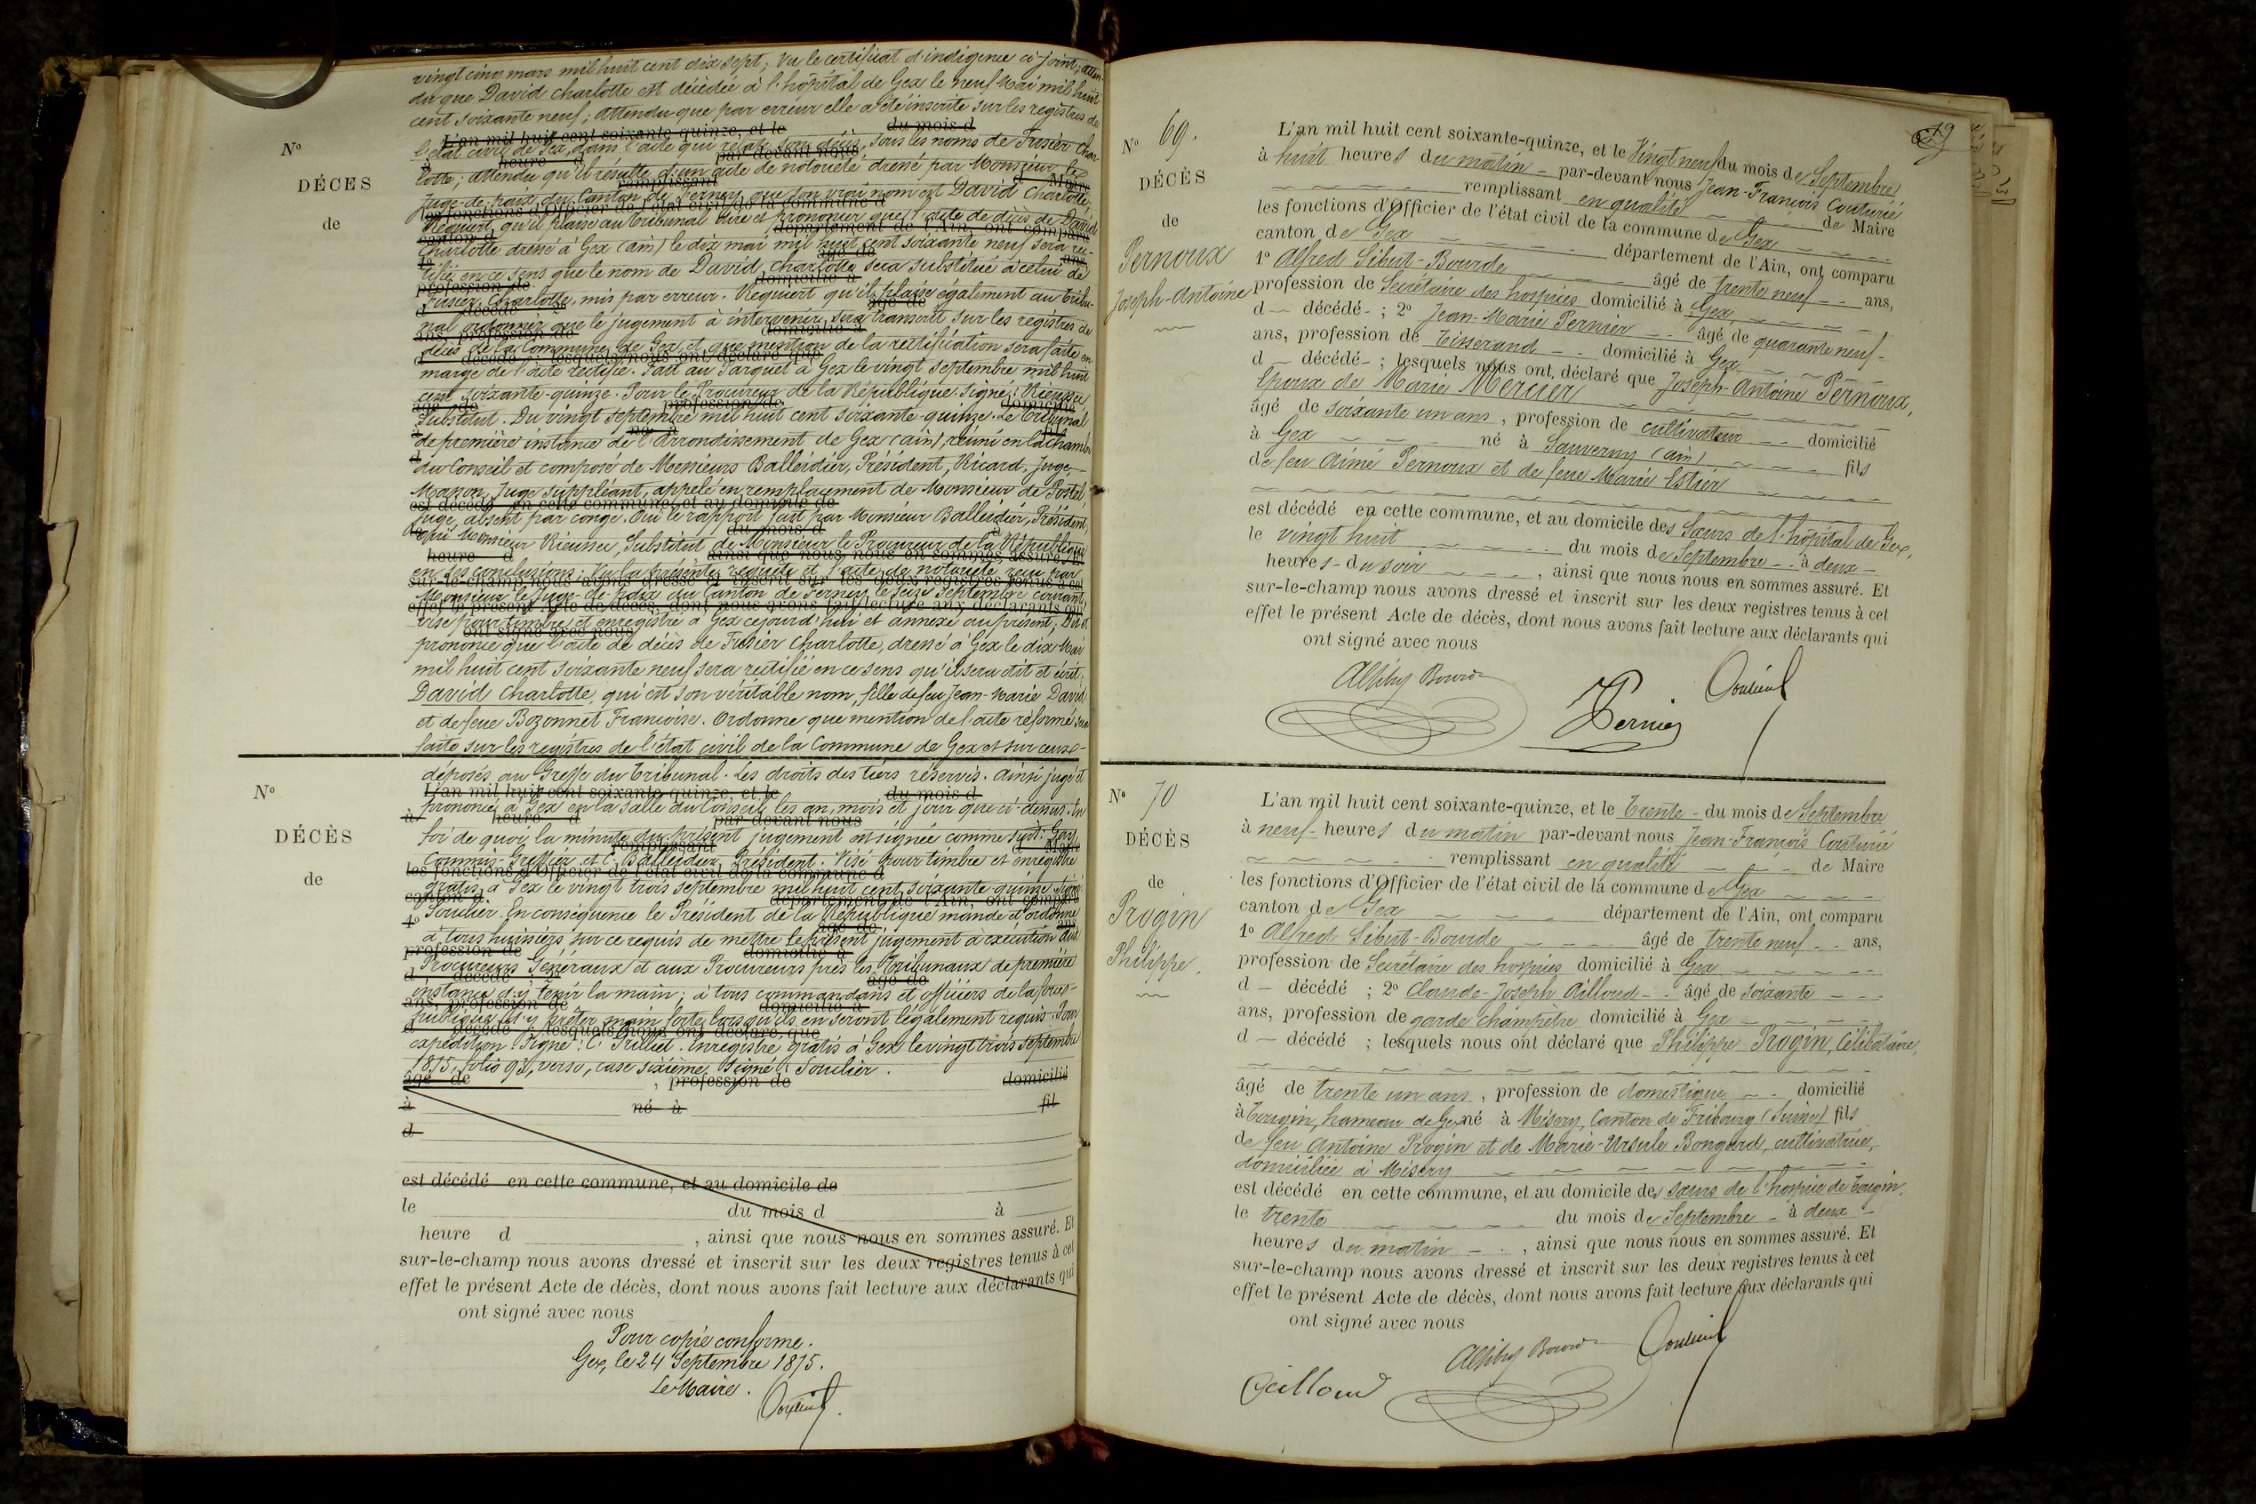 vingt cinq mars mil huit cent dix sept; Vu le certificat d'indigence ci-joint; atten-
du que David Charlotte est décédée à l'hôpital de Gex le neuf Mai mil huit
cent soixante neuf; attendu que par erreur elle a été inscrite sur les registres de
L'an mil huit cent soixante-quinze, et le du mois d
l'état civil de Gex, dans l'acte qui relate son décès, sous les noms de Fusier Char-
heure d par-devant nous
lotte; attendu qu'il résulte d'un acte de notoriété dressé par Monsieur le
remplissant d Maire
Juge-de-paix du Canton de Ferney que son vrai nom est David Charlotte;
les fonctions d'Officier de l'état civil de la commune d
Requiert qu'il plaise au tribunal dire et prononcer que l'acte de décès de David
canton d département de l'Ain, ont comparu
Charlotte dressé à Gex (ain) le dix mai mil huit cent soixante neuf sera rec-
1º âgé de ans,
tifié en ce sens que le nom de David Charlotte sera substitué à celui de
profession de domicilié à
Fusier Charlotte, mis par erreur. Requiert qu'il plaise également au tribu-
d décédé âgé de
nal ordonner que le jugement à intervenir, sera transcrit sur les registres de
ans, profession de domicilié à
décès de la Commune de Gex et que mention de la rectification sera faite en
d décédé ; lesquels nous ont déclaré que
marge de l'acte rectifié. Fait au Parquet à Gex le vingt septembre mil huit
cent soixante-quinze. Pour le Procureur de la République. Signé: Rieussec
âgé de profession de domicilié
Substitut. Du vingt septembre mil huit cent soixante-quinze. Le tribunal
à né à fil
de première instance de l'arrondissement de Gex (ain) réuni en la chambre
d
du Conseil et composé de Messieurs Balleidier, Président, Ricard, Juge,
Mason, Juge suppléant, appelé en remplacement de Monsieur de Postel
est décédé en cette commune, et au domicile de
juge, absent par congé. Oui le rapport fait par Monsieur Balleidier, Président,
le du mois d à
oui Monsieur Rieussec, Substitut de Monsieur le Procureur de la République
heure d ainsi que nous nous en sommes assuré. Et
en ses conclusions: Vu la présente requête et l'acte de notoriété reçu par
sur-le-champ nous avons dressé et inscrit sur les deux registres tenus à cet
Monsieur le Juge-de-paix du Canton de Ferney le seize Septembre courant
effet le présent Acte de décès, dont nous avons fait lecture aux déclarants qui
visé pour timbre et enregistré à Gex cejourd'hui et annexé au présent; Dit et
ont signé avec nous
prononce que l'acte de décès de Fusier Charlotte, dressé à Gex le dix Mai
mil huit cent soixante neuf sera rectifié en ce sens qu'il sera dit et écrit:
David Charlotte, qui est son véritable nom, fille de feu Jean-Marie David
et de feue Bozonnet Francoise. Ordonne que mention de l'acte réformé sera
faite sur les registres de l'état civil de la Commune de Gex et sur ceux-
Nº
DÉCÈS
de
déposés au Greffe du tribunal. Les droits des tiers réservés. Ainsi jugé et
L'an mil huit cent soixante-quinze, et le du mois d
prononcé à Gex en la salle du Conseil, les an, mois et jour que ci-dessus. En
à heure d par-devant nous
foi de quoi la minute du présent jugement est signée comme suit: Gex,
remplissant d Maire
Commis-Greffier et C. Balleidier, Président. Visé pour timbre et enregistré
les fonctions d'Officier de l'état civil de la commune d
gratis à Gex le vingt trois septembre mil huit cent soixante-quinze. Signé
canton d département de l'Ain, ont comparu
Soulier. En conséquence le Président de la République mande et ordonne
1º âgé de ans,
à tous huissiers sur ce requis de mettre le présent jugement à exécution aux
profession de domicilié à
Procureurs Généraux et aux Procureurs près les Tribunaux de première
d décédé ; 2º âgé de
instance d'y tenir la main; à tous commandants et officiers de la force-
ans, profession de domicilié à
publique d'y prêter main forte lorsqu'ils en seront légalement requis. Pour
d décédé ; lesquels nous ont déclaré, que
expédition. Signé: C. Trilliet. Enregistré gratis à Gex le vingt trois septembre
1875, folio 92, verso, case sixième. Signé: Soulier.
âgé de , profession de domicilié
à né à fil
d
est décédé en cette commune, et au domicile de
le du mois d à
heure d , ainsi que nous nous en sommes assuré. Et
sur-le-champ nous avons dressé et inscrit sur les deux registres tenus à cet
effet le présent Acte de décès, dont nous avons fait lecture aux déclarants qui
ont signé avec nous
Pour copie conforme.
Gex, le 24 Septembre 1875.
Le Maire.
Nº
DÉCES
de
19
Nº 69.
DÉCÈS
de
Pernoux
Joseph-Antoine
L'an mil huit cent soixante-quinze, et le Vingt neuf du mois de Septembre
à huit heures du matin par-devant nous Jean-François Couturié
remplissant en qualité de Maire
les fonctions d'Officier de l'état civil de la commune de Gex
canton de Gex département de l'Ain, ont comparu
1º Alfred Sibut-Bourde âgé de trente neuf ans,
profession de Secrétaire des hospices domicilié à Gex
d décédé ; 2º Jean-Marie Pernier âgé de quarante neuf
ans, profession de Tisserand domicilié à Gex
d décédé ; lesquels nous ont déclaré que Joseph-Antoine Pernoux,
Epoux de Marie Mercier
âgé de soixante un ans, profession de cultivateur domicilié
à Gex né à Sauverny (ain) fils
de feu Aimé Pernoux et de feue Marie Estier
est décédé en cette commune, et au domicile des Sœurs de l'hôpital de Gex,
le vingt huit du mois de Septembre à deux
heures du soir , ainsi que nous nous en sommes assuré. Et
sur-le-champ nous avons dressé et inscrit sur les deux registres tenus à cet
effet le présent Acte de décès, dont nous avons fait lecture aux déclarants qui
ont signé avec nous
Pernier
Nº 70
DÉCÈS
de
Progin
Philippe.
L'an mil huit cent soixante-quinze, et le Trente du mois de Septembre
à neuf heures du matin par-devant nous Jean-François Couturié
remplissant en qualité de Maire
les fonctions d'Officier de l'état civil de la commune de Gex
canton de Gex département de l'Ain, ont comparu
1º Alfred Sibut-Bourde âgé de trente neuf ans,
profession de Secrétaire des hospices domicilié à Gex
d décédé ; 2º Claude-Joseph Ailloud âgé de soixante
ans, profession de garde champêtre domicilié à Gex
d décédé ; lesquels nous ont déclaré que Philippe Progin, Célibataire,
âgé de trente un ans, profession de domestique domicilié
à Tougin, hameau de Gex né à Misery, Canton de Fribourg (Suisse) fils
de feu Antoine Progin et de Marie-Ursule Bongard, cultivatrice,
domiciliée à Misery
est décédé en cette commune, et au domicile des sœurs de l'hospice de Tougin,
le trente du mois de Septembre à deux
heures du matin , ainsi que nous nous en sommes assuré. Et
sur-le-champ nous avons dressé et inscrit sur les deux registres tenus à cet
effet le présent Acte de décès, dont nous avons fait lecture aux déclarants qui
ont signé avec nous
Ailloud